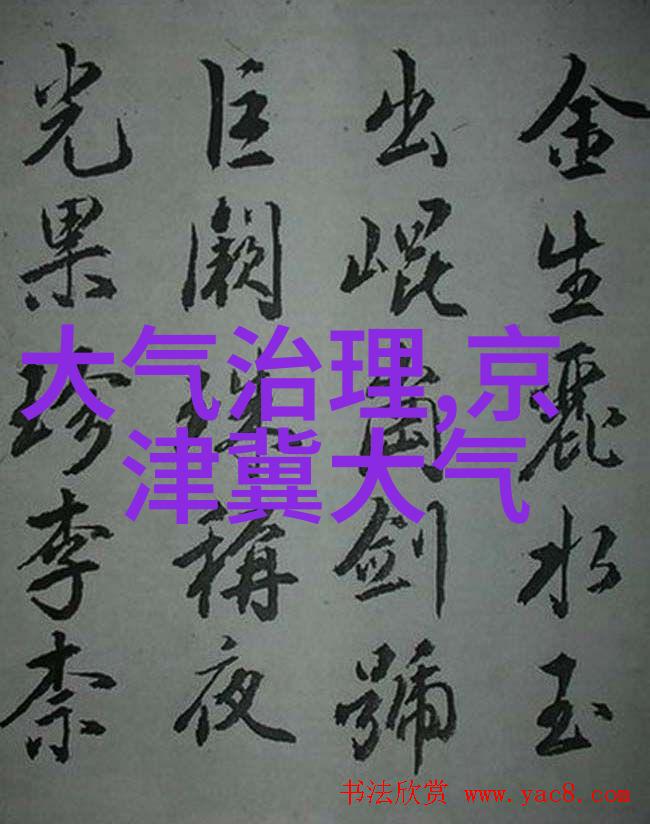 金生麗水玉
出崐崗劍號
巨闕珠稱夜
光果珍李柰
大气治理,京
津冀大气
书法欣赏 www.yac8.com